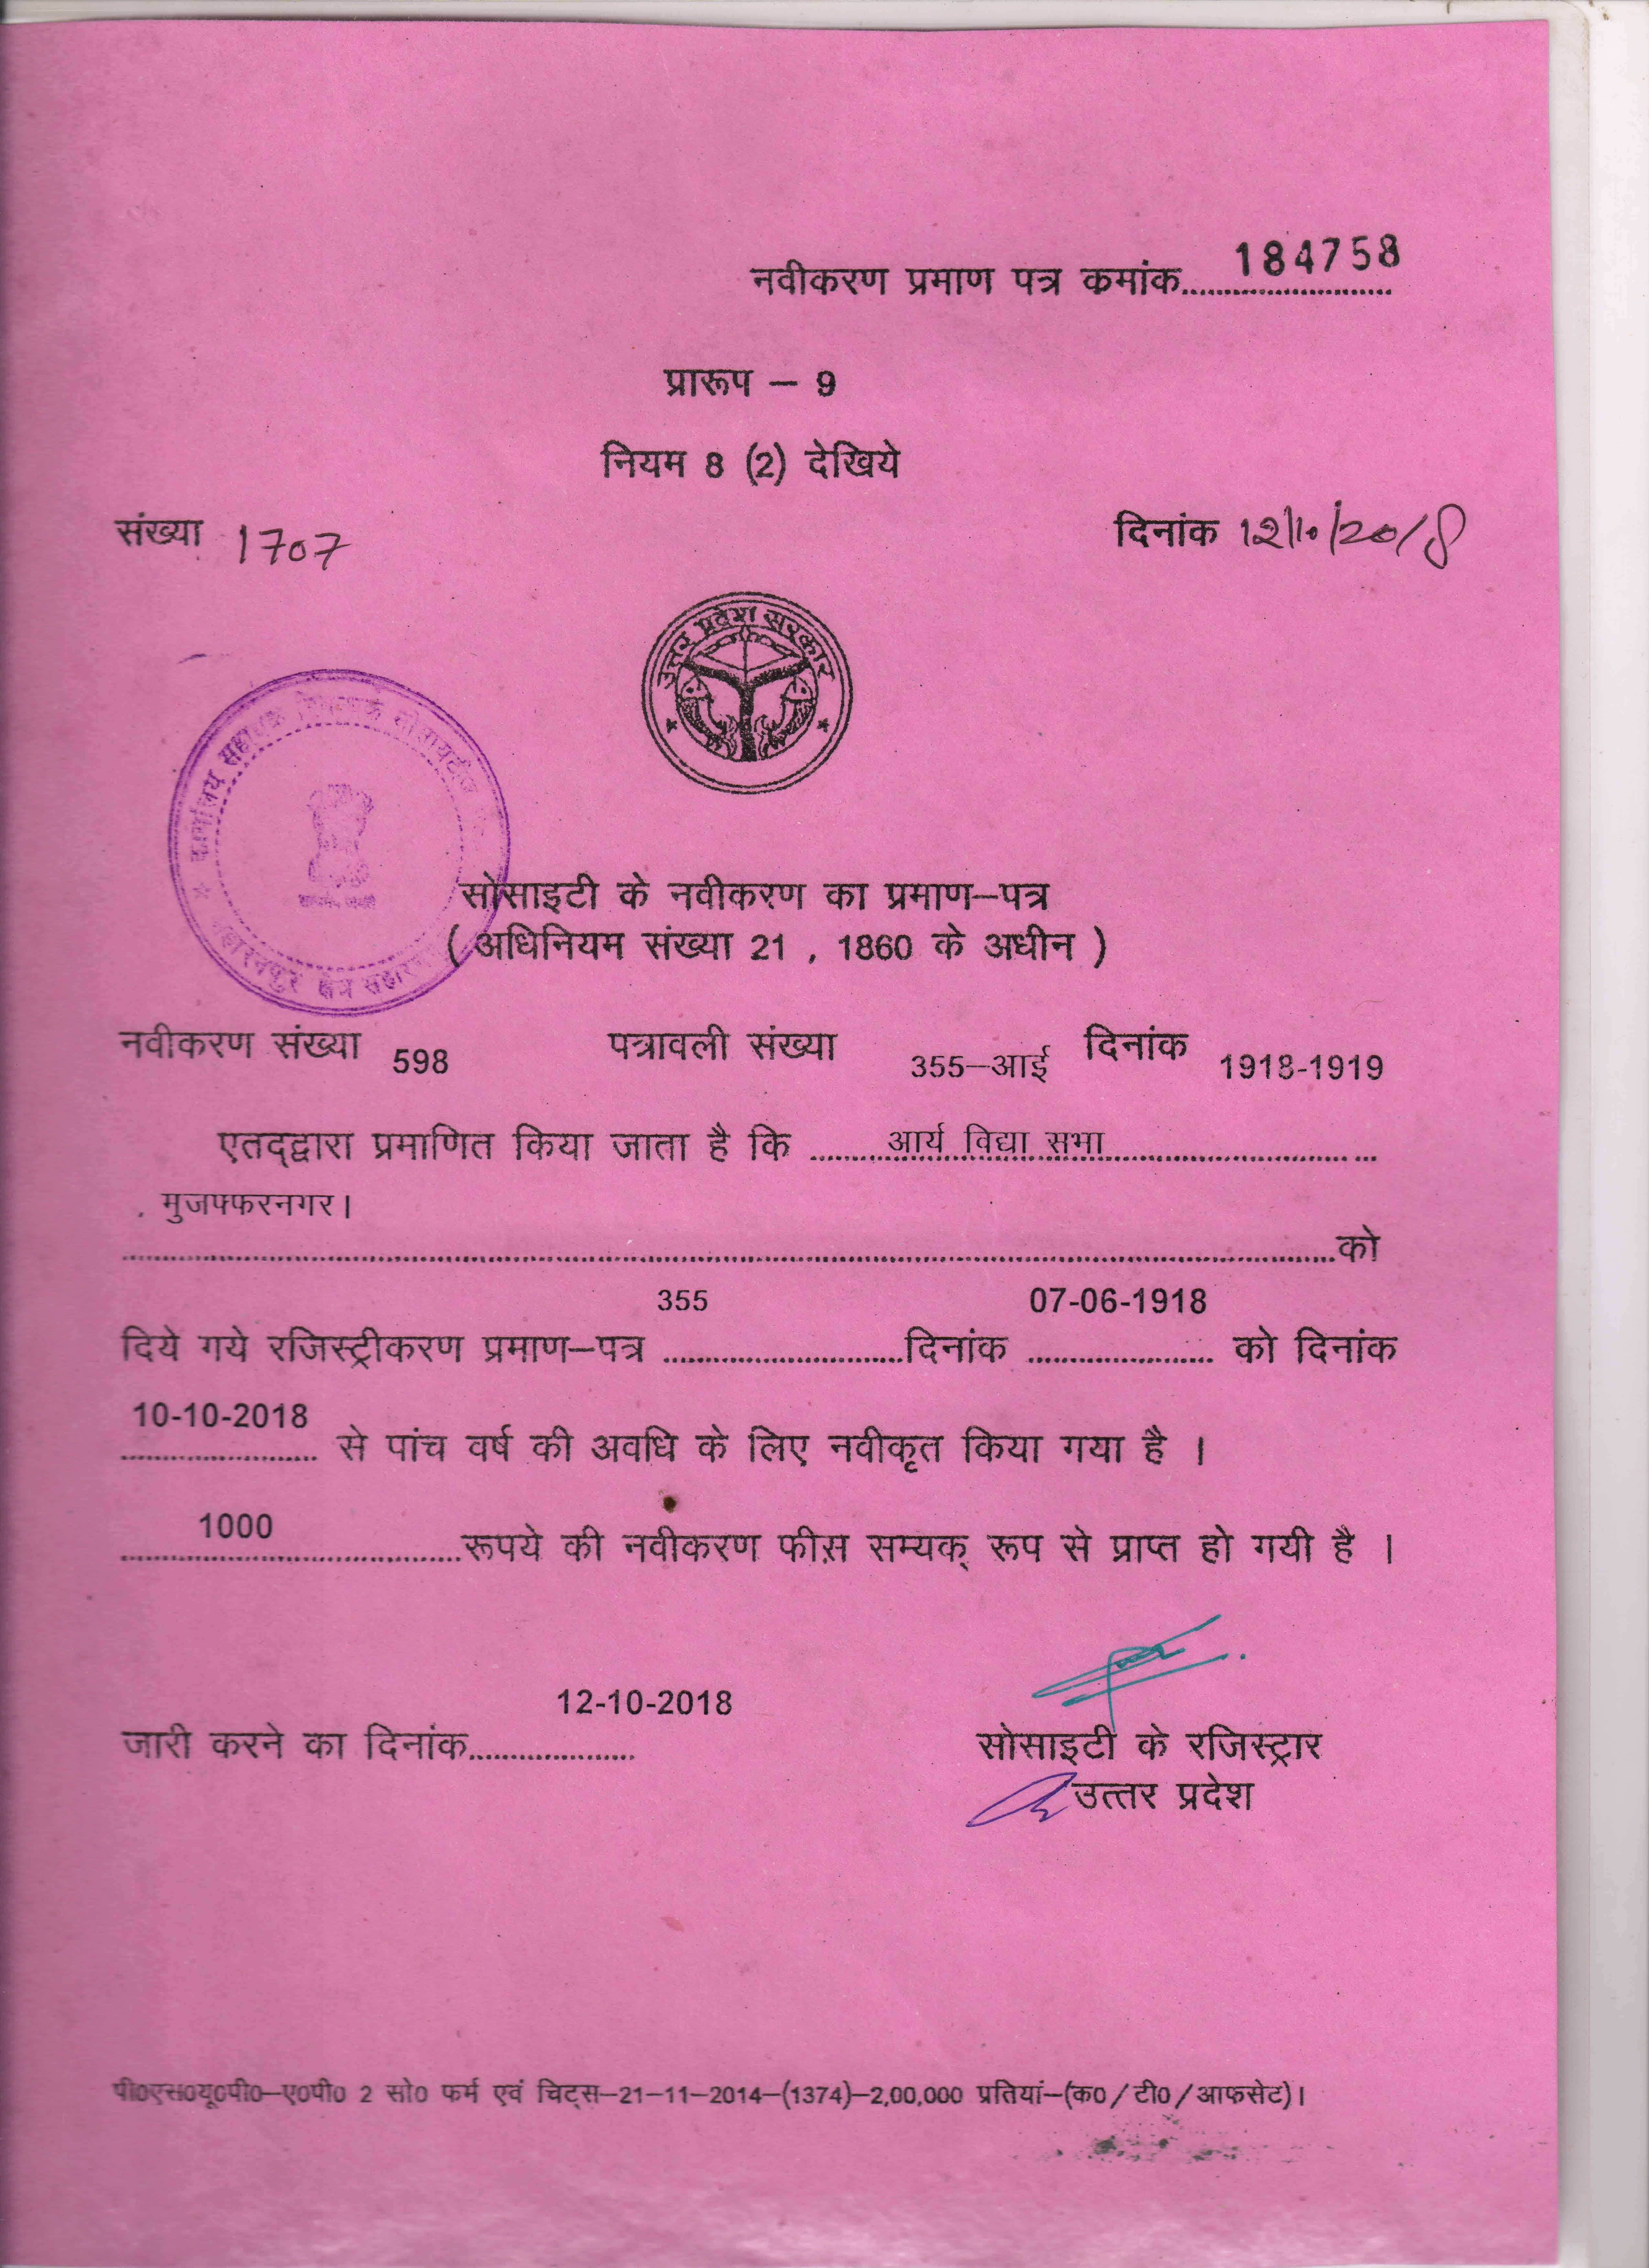 नवीकरण प्रमाण पत्र कमांक 184758
प्रारूप – 9
नियम 8 (2) देखिये
संख्या 1707 दिनांक 12/10/2018
उत्तर प्रदेश सरकार
कार्यालय सहायक निबन्धक सोसायटीज
सहारनपुर क्षेत्र
सोसाइटी के नवीकरण का प्रमाण–पत्र
( अधिनियम संख्या 21 , 1860 के अधीन )
नवीकरण संख्या 598 पत्रावली संख्या 355–आई दिनांक 1918-1919
एतद्द्वारा प्रमाणित किया जाता है कि आर्य विद्या सभा
मुजफ्फरनगर।
को
दिये गये रजिस्ट्रीकरण प्रमाण–पत्र 355 दिनांक 07-06-1918 को दिनांक
10-10-2018 से पांच वर्ष की अवधि के लिए नवीकृत किया गया है ।
1000 रूपये की नवीकरण फीस सम्यक् रूप से प्राप्त हो गयी है ।
जारी करने का दिनांक 12-10-2018
सोसाइटी के रजिस्ट्रार
उत्तर प्रदेश
पी0एस0यू0पी0–ए0पी0 2 सो0 फर्म एवं चिट्स–21–11–2014–(1374)–2,00,000 प्रतियां–(क0/टी0/आफसेट)।